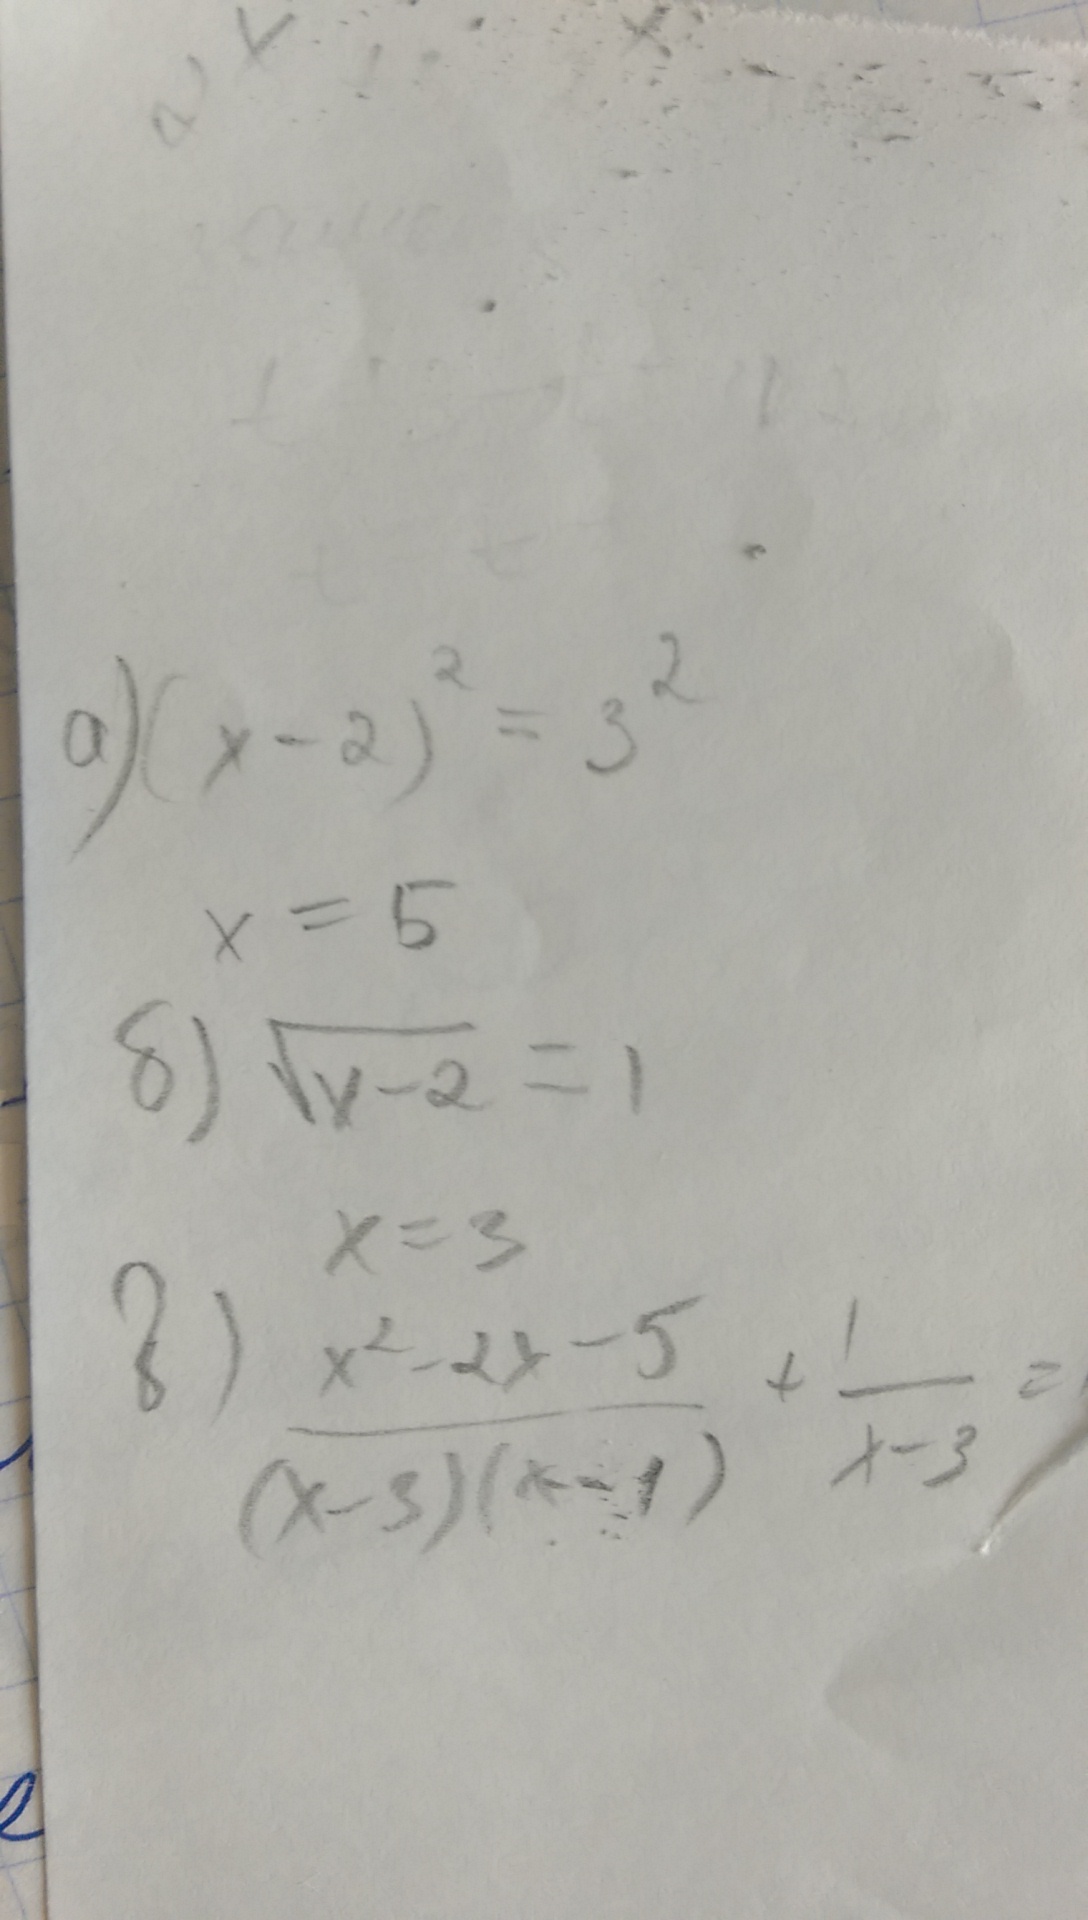 а) (x-2)² = 3²
x = 5
б) √(x-2) = 1
x = 3
в) (x²-2x-5)/((x-3)(x-1)) + 1/(x-3) =